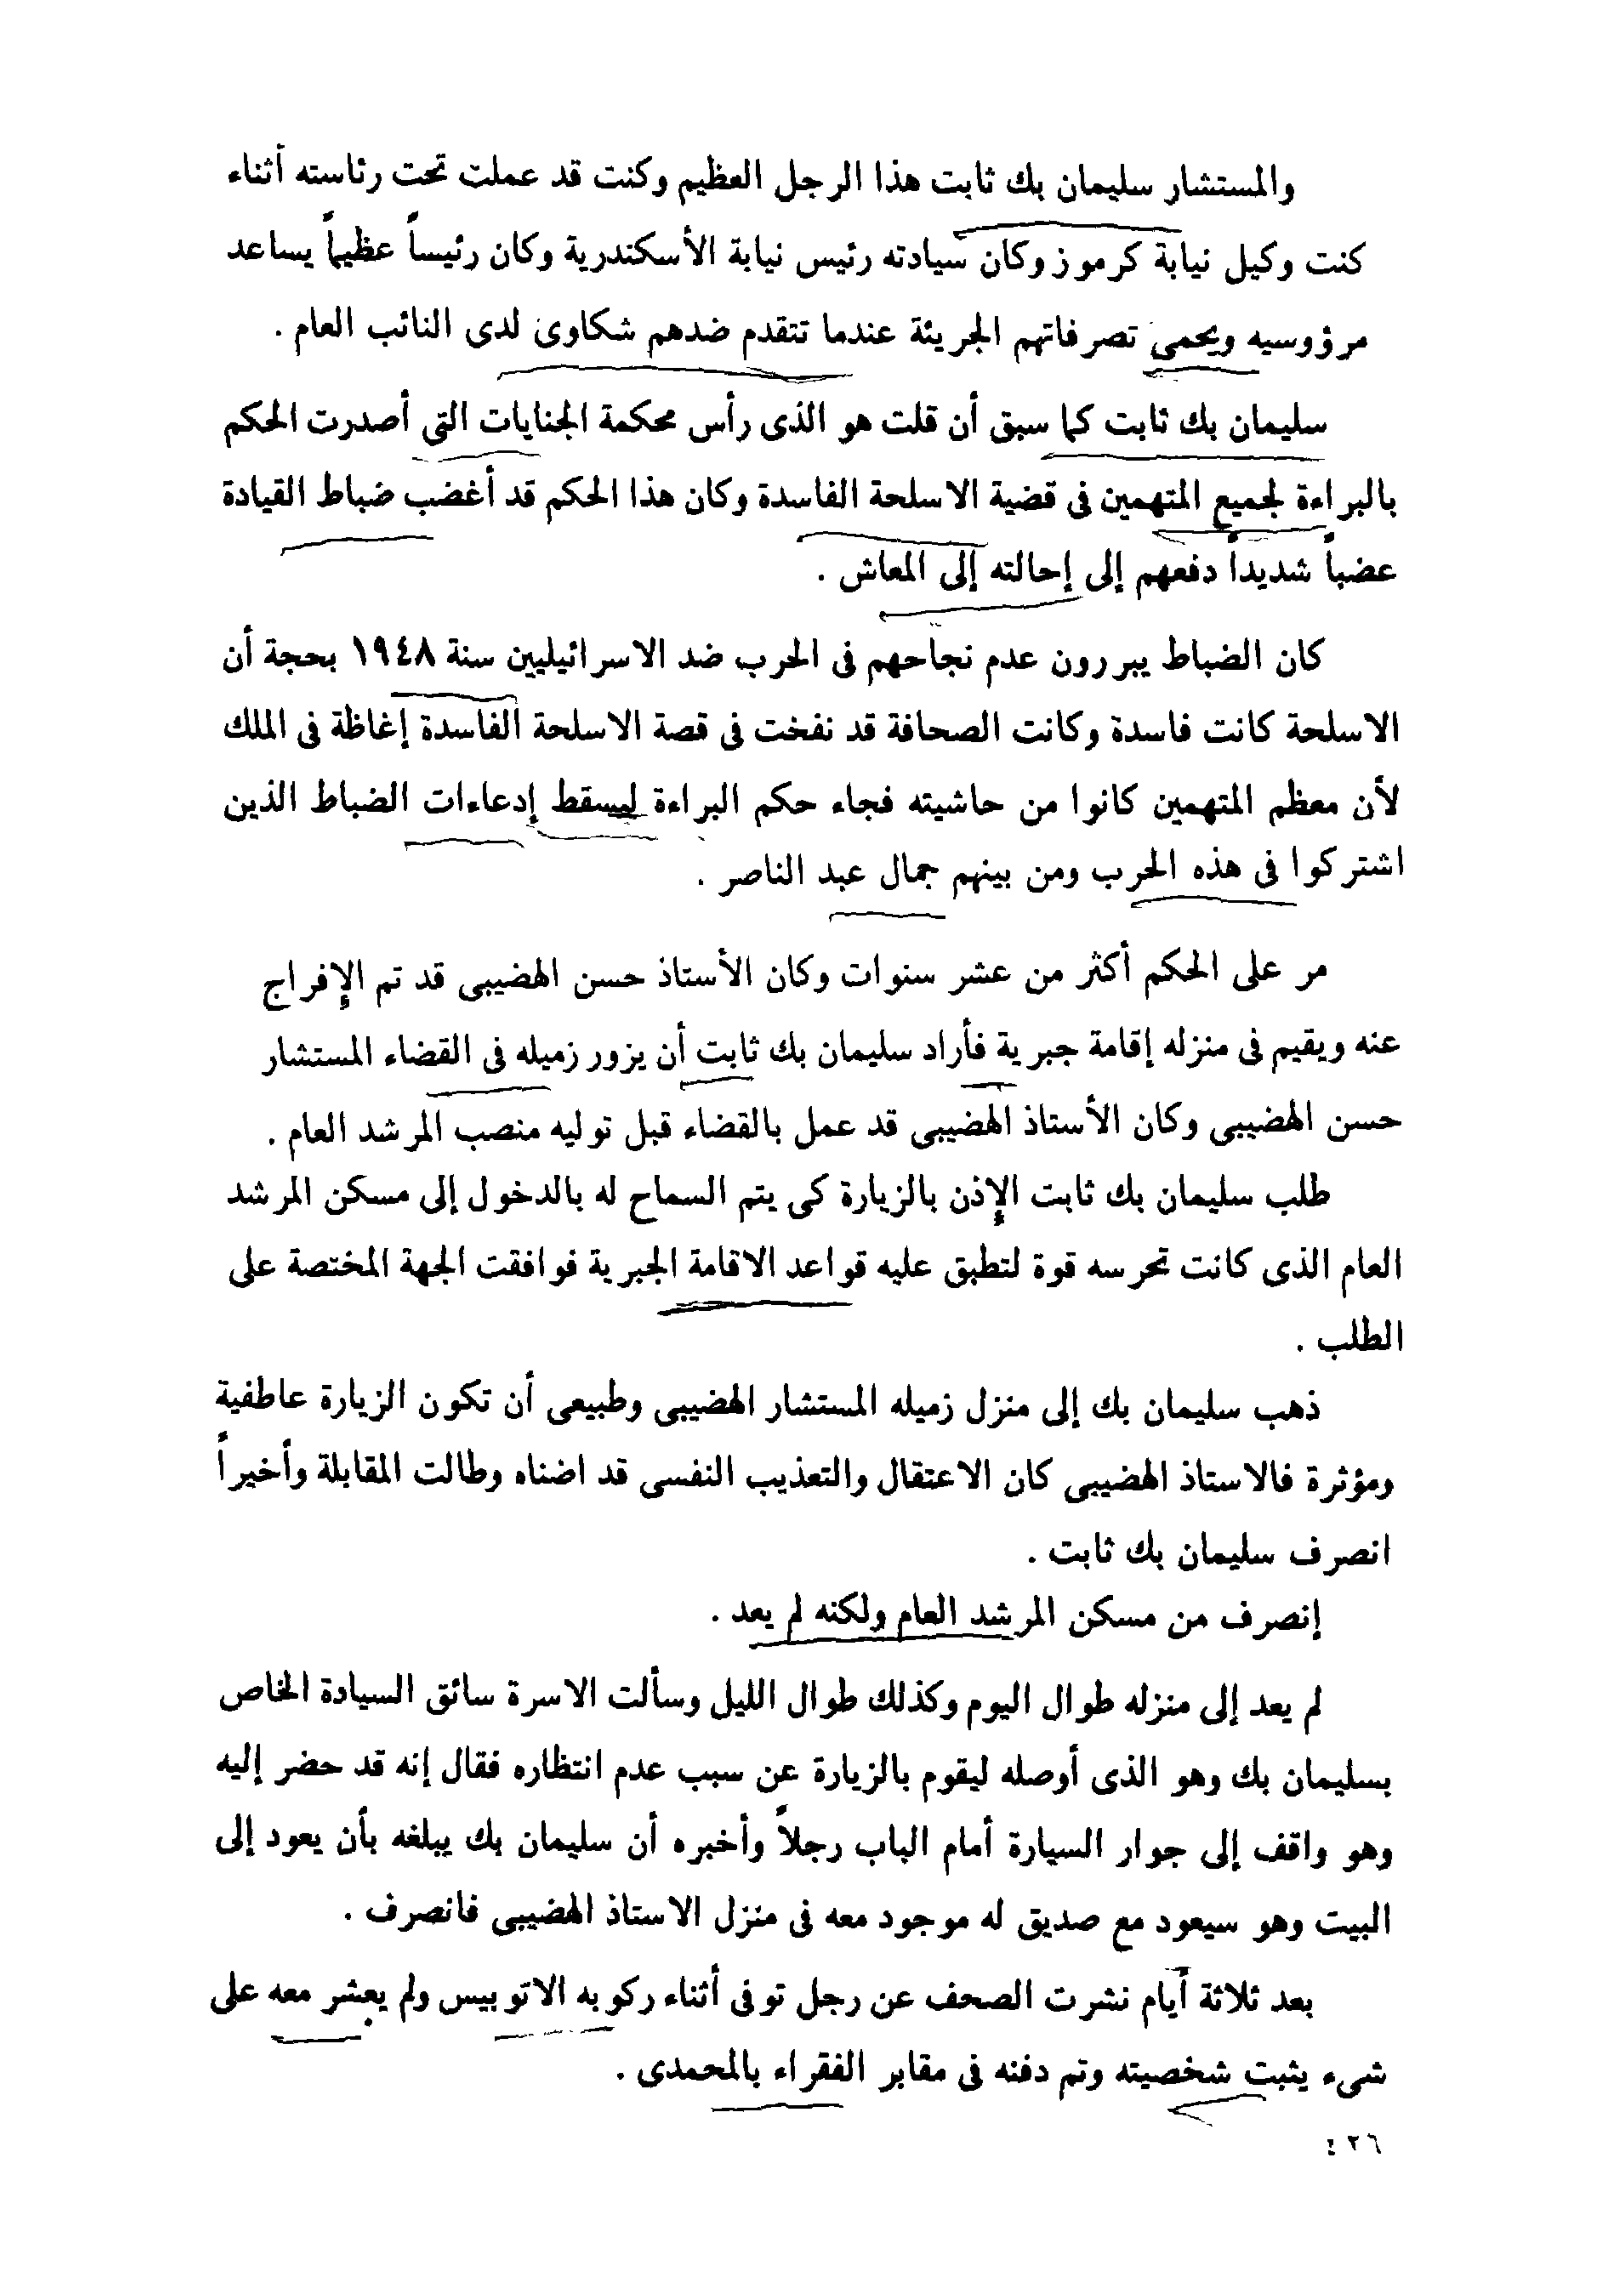 والمستشار سليمان بك ثابت هذا الرجل العظيم وكنت قد عملت تحت رئاسته أثناء
كنت وكيل نيابة كرموز وكان سيادته رئيس نيابة الأسكندرية وكان رئيساً عظيماً يساعد
مرؤوسيه ويحمى تصرفاتهم الجريئة عندما تتقدم ضدهم شكاوى لدى النائب العام .
سليمان بك ثابت كما سبق أن قلت هو الذى رأس محكمة الجنايات التى أصدرت الحكم
بالبراءة لجميع المتهمين فى قضية الاسلحة الفاسدة وكان هذا الحكم قد أغضب ضباط القيادة
عضباً شديداً دفعهم إلى إحالته إلى المعاش .
كان الضباط يبررون عدم نجاحهم فى الحرب ضد الاسرائيليين سنة ١٩٤٨ بحجة أن
الاسلحة كانت فاسدة وكانت الصحافة قد نفخت فى قصة الاسلحة الفاسدة إغاظة فى الملك
لأن معظم المتهمين كانوا من حاشيته فجاء حكم البراءة ليسقط إدعاءات الضباط الذين
اشتركوا فى هذه الحرب ومن بينهم جمال عبد الناصر .
مر على الحكم أكثر من عشر سنوات وكان الأستاذ حسن الهضيبى قد تم الإفراج
عنه ويقيم فى منزله إقامة جبرية فأراد سليمان بك ثابت أن يزور زميله فى القضاء المستشار
حسن الهضيبى وكان الأستاذ الهضيبى قد عمل بالقضاء قبل توليه منصب المرشد العام .
طلب سليمان بك ثابت الإذن بالزيارة كى يتم السماح له بالدخول إلى مسكن المرشد
العام الذى كانت تحرسه قوة لتطبق عليه قواعد الاقامة الجبرية فوافقت الجهة المختصة على
الطلب .
ذهب سليمان بك إلى منزل زميله المستشار الهضيبى وطبيعى أن تكون الزيارة عاطفية
ومؤثرة فالاستاذ الهضيبى كان الاعتقال والتعذيب النفسى قد اضناه وطالت المقابلة وأخيراً
انصرف سليمان بك ثابت .
إنصرف من مسكن المرشد العام ولكنه لم يعد .
لم يعد إلى منزله طوال اليوم وكذلك طوال الليل وسألت الاسرة سائق السيادة الخاص
بسليمان بك وهو الذى أوصله ليقوم بالزيارة عن سبب عدم انتظاره فقال إنه قد حضر إليه
وهو واقف إلى جوار السيارة أمام الباب رجلاً وأخبره أن سليمان بك يبلغه بأن يعود إلى
البيت وهو سيعود مع صديق له موجود معه فى منزل الاستاذ الهضيبى فانصرف .
بعد ثلاثة أيام نشرت الصحف عن رجل توفى أثناء ركوبه الاتوبيس ولم يعشر معه على
شىء يثبت شخصيته وتم دفنه فى مقابر الفقراء بالمحمدى .
٤٢٦